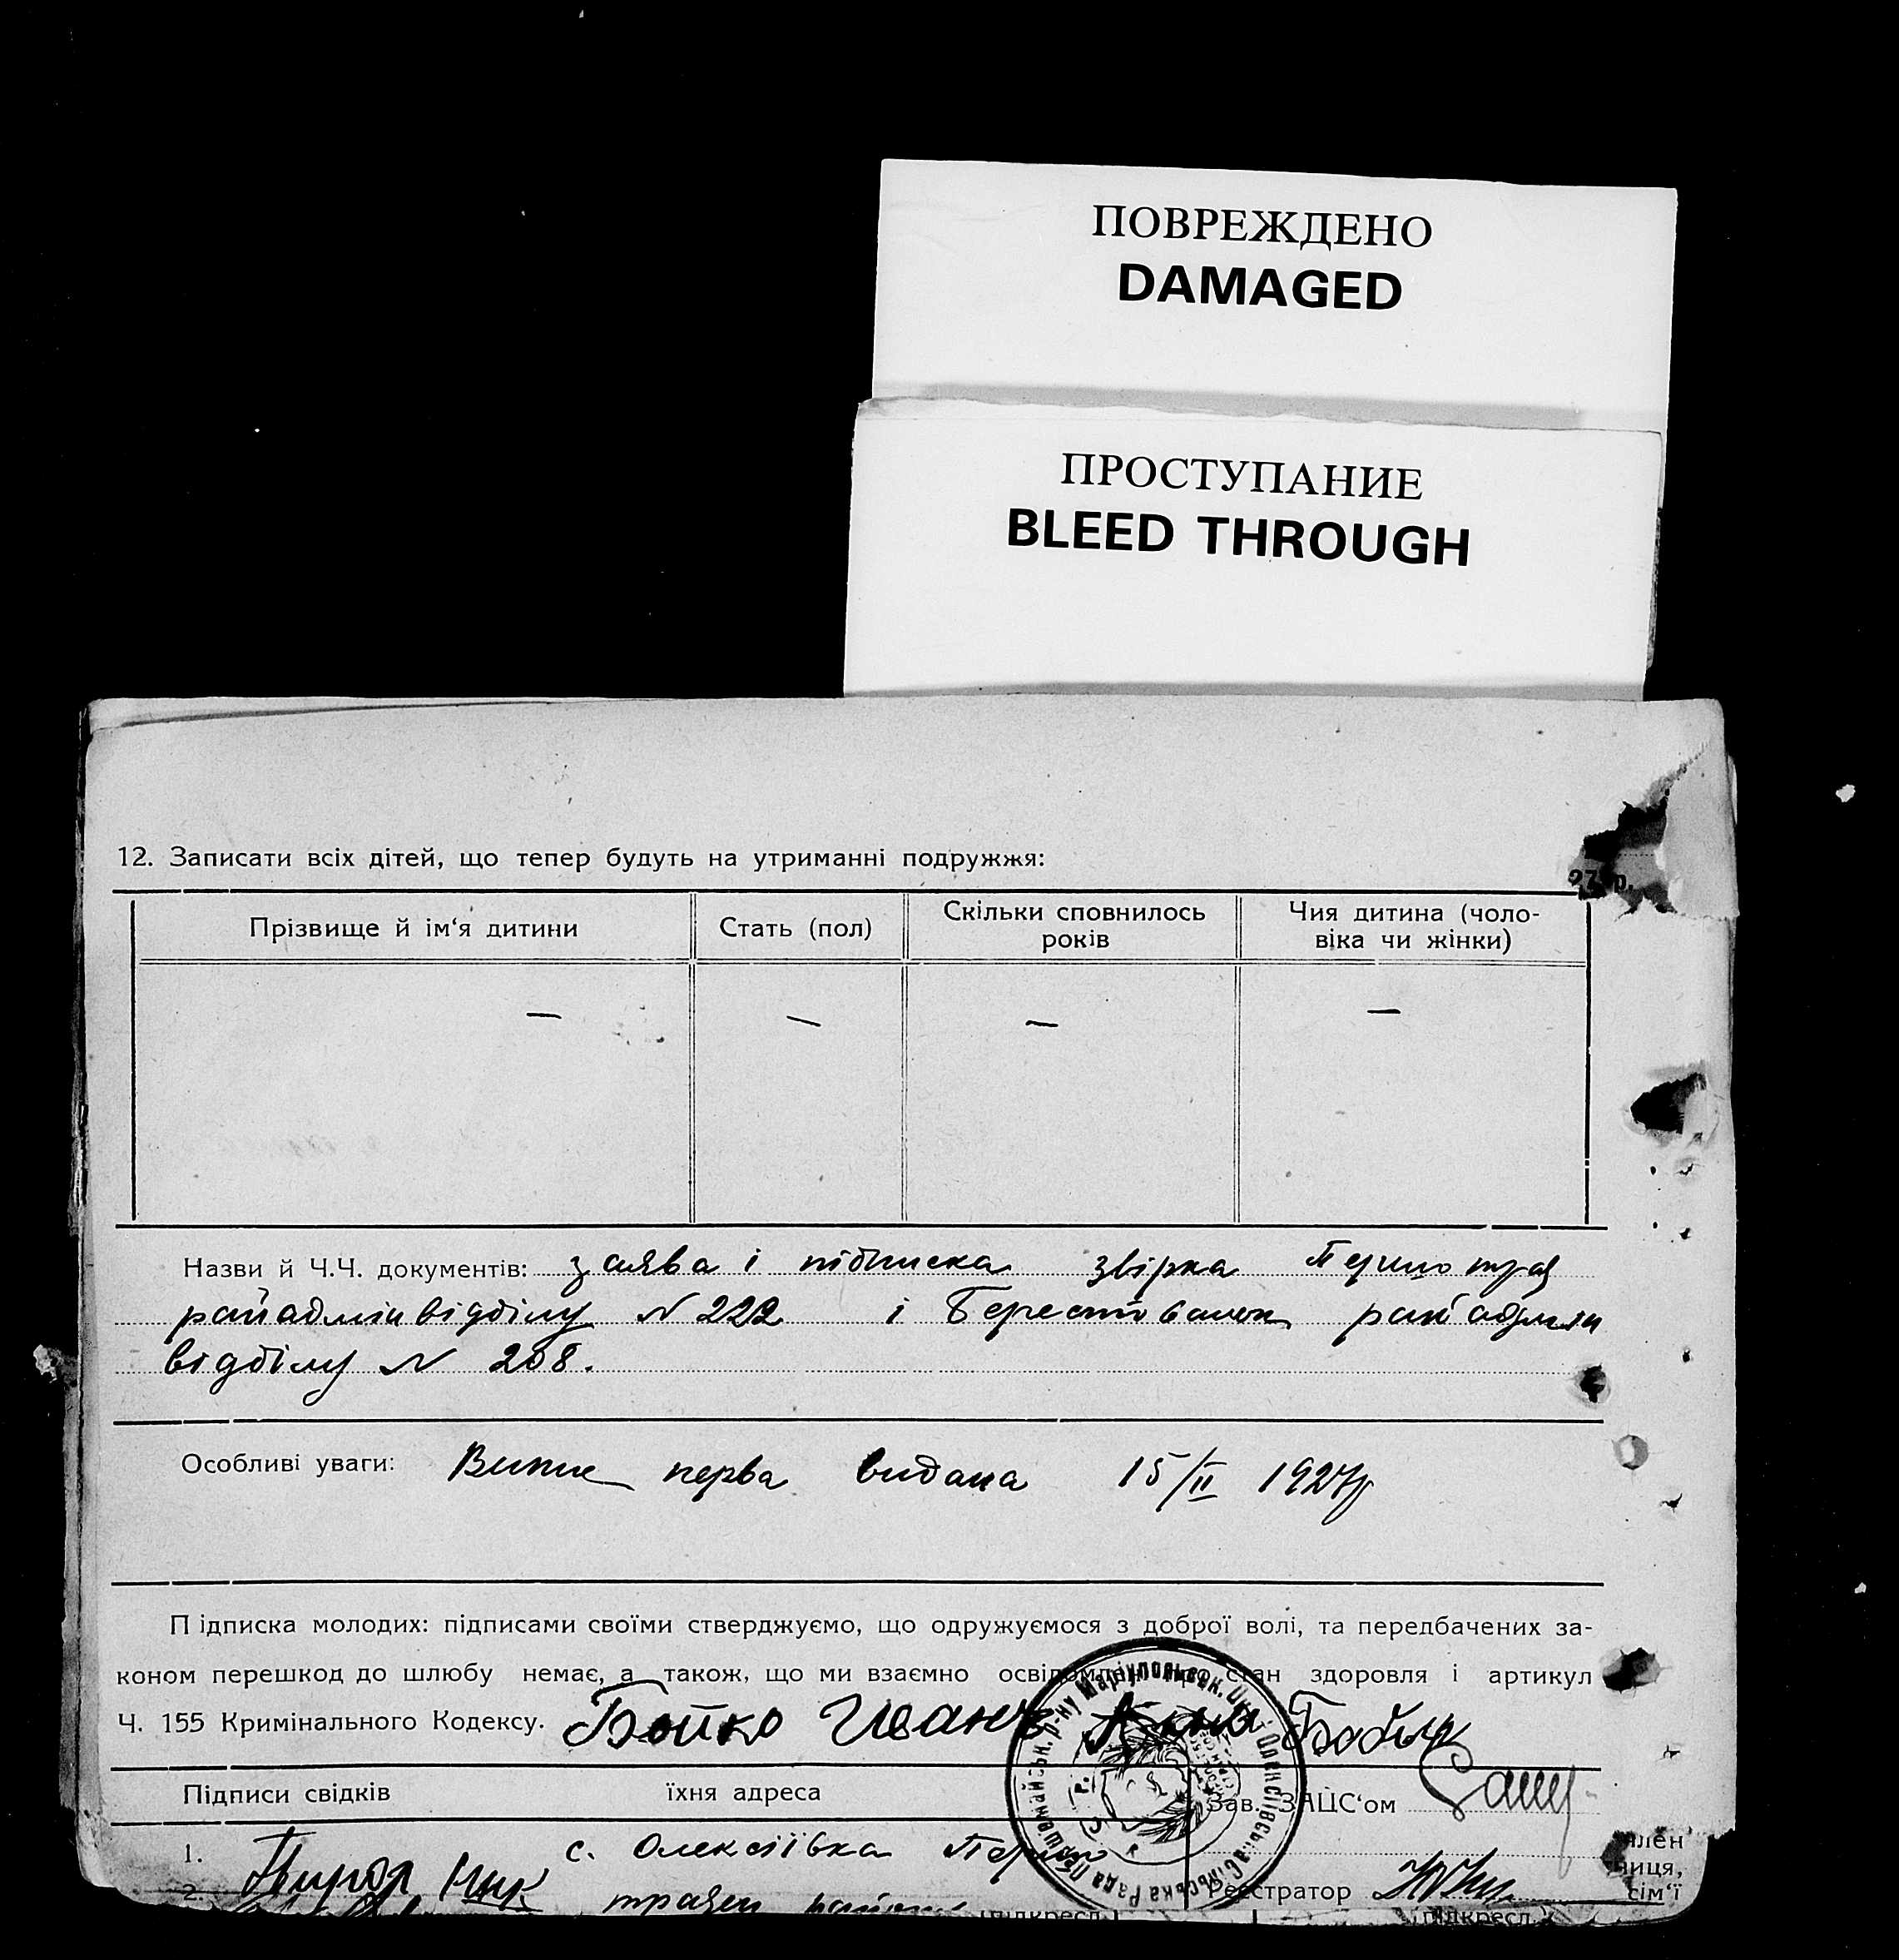 ПОВРЕЖДЕНО
DAMAGED
ПРОСТУПАНИЕ
BLEED THROUGH
12. Записати всіх дітей, що тепер будуть на утриманні подружжя:
27 р.
Прізвище й ім‘я дитини
Стать (пол)
Скільки сповнилось
років
Чия дитина (чоло-
віка чи жінки)
— — — —
Назви й Ч.Ч. документів: заява і підписка звірка Першотрав
райадмінвідділу N 222 і Берестован райадмін
відділу N 208.
Особливі уваги: перва видана 15/II 1927р
Підписка молодих: підписами своїми стверджуємо, що одружуємося з доброї волі, та передбачених за-
коном перешкод до шлюбу немає, а також, що ми взаємно освідомлені про стан здоровля і артикул
Ч. 155 Кримінального Кодексу. Бойко Иванъ Анна
Підписи свідків їхня адреса Зав. ЗАЦС‘ом
1. с. Олексіївка Перш
2. район
Реєстратор
Олексіївська Сільська Рада Першемайськ. р-ну Маріупольськ. Окр.
член
ниця,
сім‘ї
(підкресл.)
підкресл.